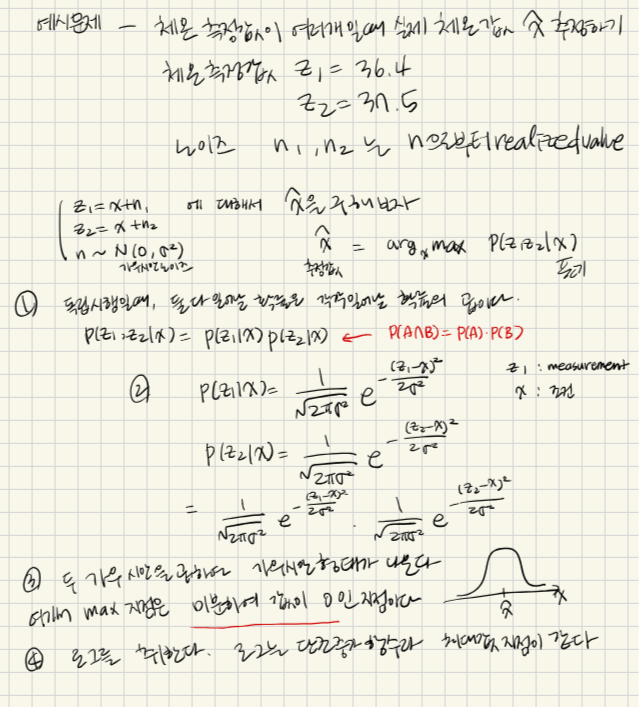 예시문제 – 체온 측정값이 여러개일때 실제 체온값 x̂ 추정하기
체온측정값 z₁ = 36.4
z₂ = 37.5
노이즈 n₁, n₂ 는 n으로부터 realized value
z₁ = x+n₁ 에 대해서 x̂을 구해보자
z₂ = x+n₂
n ~ N(0, σ²) x̂ = argₓ max P(z₁z₂|x)
가우시안노이즈 추정값 동기
① 독립시행일때, 둘다 일어날 확률은 각각일어날 확률의 곱이다.
P(z₁,z₂|x) = p(z₁|x) p(z₂|x) ← P(A∩B) = P(A)·P(B)
② P(z₁|x) = 1/√(2πσ²) e^(-(z₁-x)²/2σ²) z₁ : measurement
x : 조건
P(z₂|x) = 1/√(2πσ²) e^(-(z₂-x)²/2σ²)
= 1/√(2πσ²) e^(-(z₁-x)²/2σ²) · 1/√(2πσ²) e^(-(z₂-x)²/2σ²)
③ 두 가우시안을 곱하여 가우시안형태가 나온다
여기서 max 지점은 미분하여 값이 0인 지점이다
x̂ x
④ 로그를 취한다. 로그는 단조증가 함수라 최대값 지점이 같다